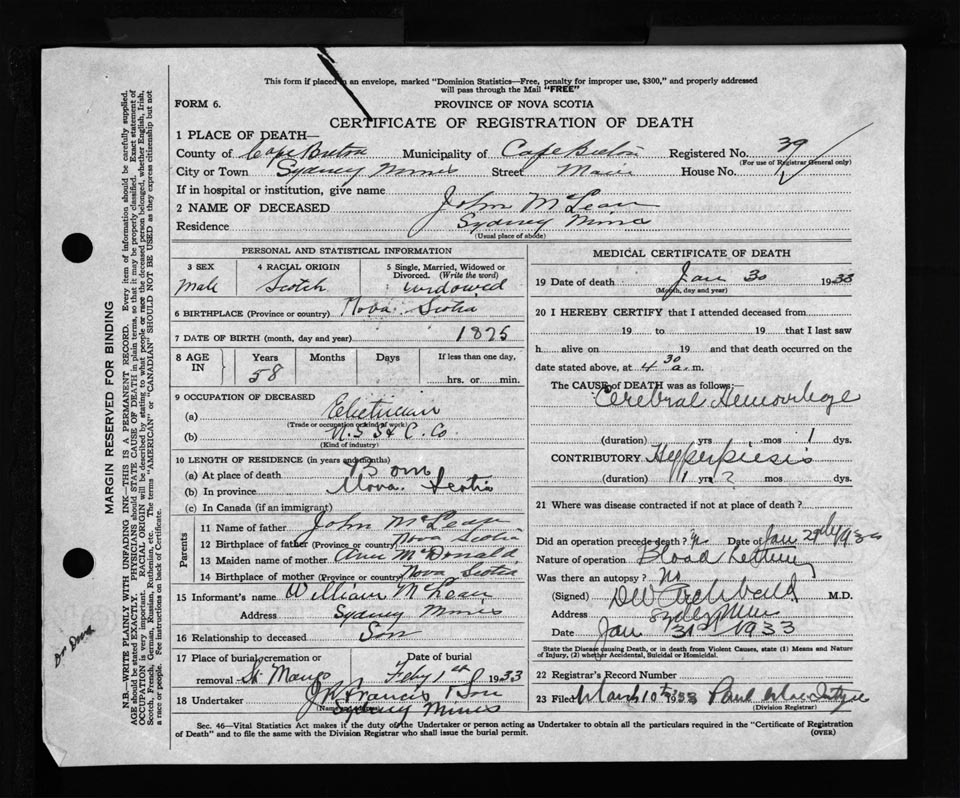 This form if placed in an envelope, marked "Dominion Statistics—Free, penalty for improper use, $300," and properly addressed
will pass through the Mail "FREE"
FORM 6.
PROVINCE OF NOVA SCOTIA
CERTIFICATE OF REGISTRATION OF DEATH
1 PLACE OF DEATH—
County of Cape Breton Municipality of Cape Breton Registered No. 39
(For use of Registrar General only)
City or Town Sydney Mines Street Main House No.
If in hospital or institution, give name
2 NAME OF DECEASED John McLean
Residence Sydney Mines
(Usual place of abode)
PERSONAL AND STATISTICAL INFORMATION
3 SEX 4 RACIAL ORIGIN 5 Single, Married, Widowed or
Divorced. (Write the word)
Male Scotch widowed
6 BIRTHPLACE (Province or country) Nova Scotia
7 DATE OF BIRTH (month, day and year) 1875
8 AGE IN Years Months Days If less than one day,
58 hrs. or min.
9 OCCUPATION OF DECEASED
(a) Electrician
(Trade or occupation or kind of work)
(b) N. S S & C. Co.
(Kind of industry)
10 LENGTH OF RESIDENCE (in years and months)
(a) At place of death Born
(b) In province Nova Scotia
(c) In Canada (if an immigrant)
Parents
11 Name of father John McLean
12 Birthplace of father (Province or country) Nova Scotia
13 Maiden name of mother Ann McDonald
14 Birthplace of mother (Province or country) Nova Scotia
15 Informant's name William McLean
Address Sydney Mines
16 Relationship to deceased Son
17 Place of burial, cremation or removal Date of burial
St. Marys Feby 1st 1933
18 Undertaker J. Francis & Son
Sydney Mines
MEDICAL CERTIFICATE OF DEATH
19 Date of death Jan 30 1933
(Month, day and year)
20 I HEREBY CERTIFY that I attended deceased from
19 to 19 that I last saw
h alive on 19 and that death occurred on the
date stated above, at 4 30 a. m.
The CAUSE of DEATH was as follows:—
Cerebral Hemorrhage
(duration) yrs mos 1 dys.
CONTRIBUTORY Hyperpiesis
(duration) yrs ? mos dys.
21 Where was disease contracted if not at place of death?
Did an operation precede death? Date of Jan 29th
Nature of operation Blood Letting
Was there an autopsy? No
(Signed) DW Archibald M.D.
Address Sydney Mines
Date Jan 31st 1933
State the Disease causing Death, or in death from Violent Causes, state (1) Means and Nature
of Injury, (2) whether Accidental, Suicidal or Homicidal.
22 Registrar's Record Number
23 Filed March 10th 1933
(Division Registrar)
Sec. 46—Vital Statistics Act makes it the duty of the Undertaker or person acting as Undertaker to obtain all the particulars required in the "Certificate of Registration
of Death" and to file the same with the Division Registrar who shall issue the burial permit.
(OVER)
MARGIN RESERVED FOR BINDING
N.B.—WRITE PLAINLY WITH UNFADING INK—THIS IS A PERMANENT RECORD. Every item of information should be carefully supplied.
AGE should be stated EXACTLY. PHYSICIANS should STATE CAUSE OF DEATH in plain terms, so that it may be properly classified. Exact statement of
OCCUPATION is very important. RACIAL ORIGIN will be described by stating to what people or race the deceased person belonged, whether English, Irish,
Scotch, French, German, Russian, Ruthenian, etc. The terms "AMERICAN" or "CANADIAN" SHOULD NOT BE USED as they express citizenship but not
a race or people. See instructions on back of Certificate.